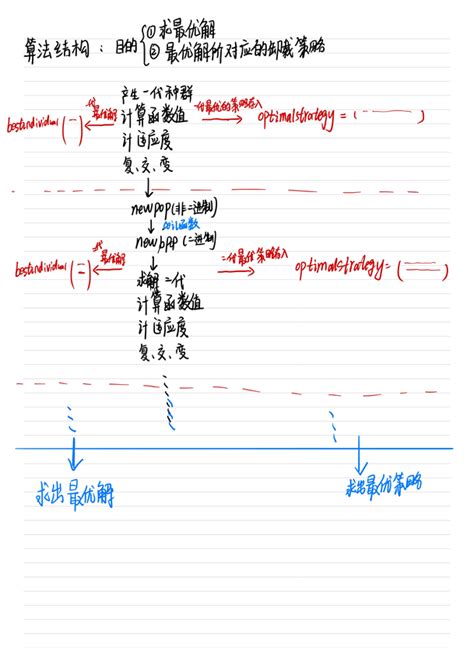 算法结构：目的 ① 求最优解
② 最优解所对应的卸载策略
产生一代种群
bestindividual(一) 一代最优解 计算函数值 一代最优的策略存入 optimalstrategy = ( )
计适应度
复、交、变
newpop(非二进制)
ceil函数
newpop (二进制)
bestindividual (二) 二代最优解 求解二代 二代最优策略存入 optimalstrategy= ( )
计算函数值
计适应度
复、交、变
求出最优解 求出最优策略